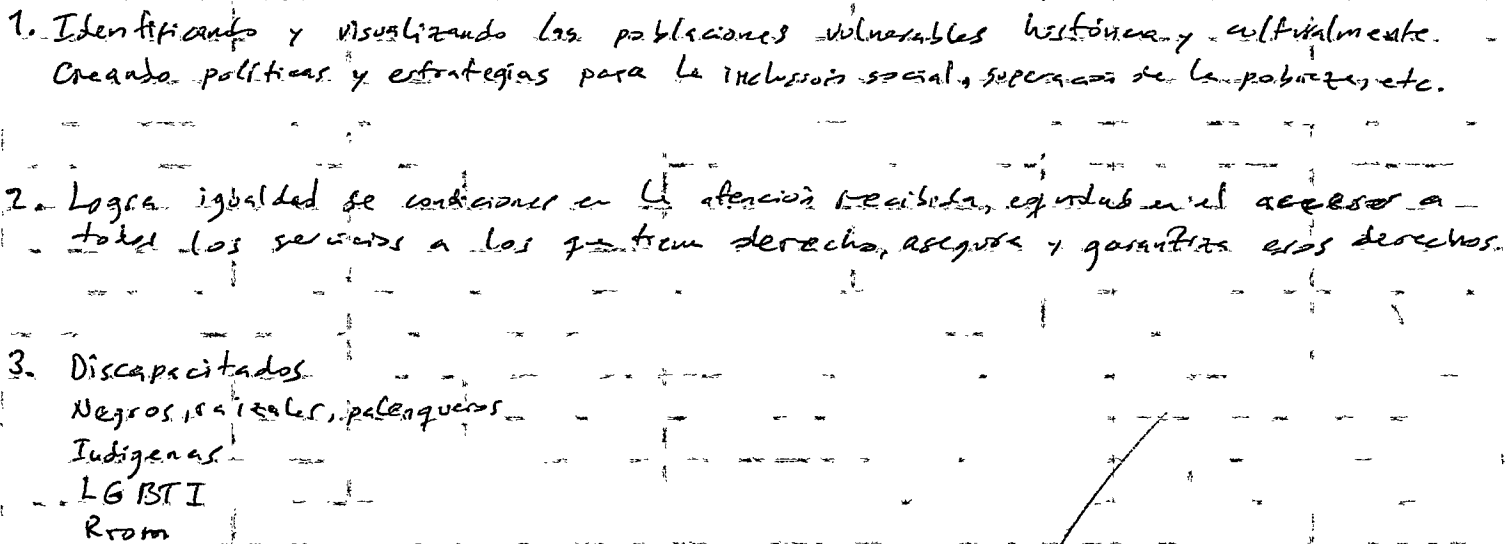 1. Identificando y visualizando las poblaciones vulnerables histórica y culturalmente.
Creando políticas y estrategias para la inclusión social, superación de la pobreza, etc.
2. Logra igualdad de condiciones en la atención recibida, equidad en el acceso a
todos los servicios a los que tiene derecho, asegura y garantiza esos derechos.
3. Discapacitados
Negros, raizales, palenqueros
Indígenas
LGBTI
Rrom